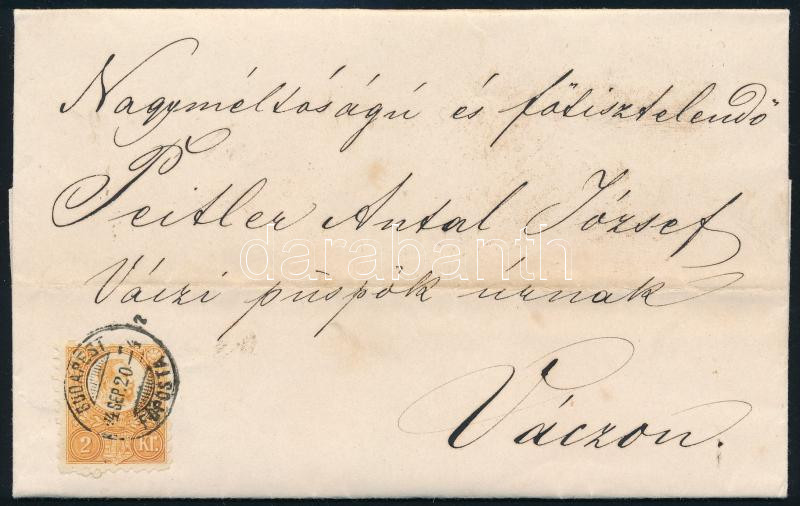 Nagyméltóságú és főtisztelendő
Peitler Antal József
Váczi püspök úrnak
Váczon.
darabanth
BUDAPEST
SEP. 20
FŐPOSTA
2 Kr.